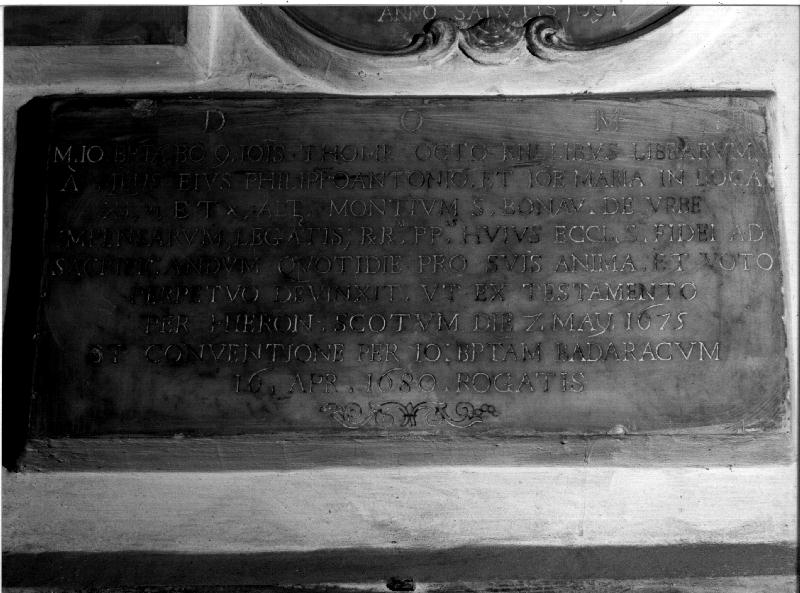 ANNO SALVTIS 1691
D O M
M. IO BPTA BO Q. IOIS THOME OCTO LIBVS LIBRARVM
À FILIIS EIVS PHILIPPO ANTONIO, ET IOE MARIA IN LOCA
ET X, ALT. MONTIVM S. BONAV. DE VRBE
IMPENSARVM, LEGATIS, R.R. PP. HVIVS ECCL. S. FIDEI AD
SACRIFICANDVM QVOTIDIE PRO SVIS ANIMA. ET VOTO
PERPETVO DEVINXIT. VT EX TESTAMENTO
PER HIERON. SCOTVM DIE 7. MAY. 1675
ET CONVENTIONE PER IO: BPTAM BADARACVM
16. APR. 1680. ROGATIS